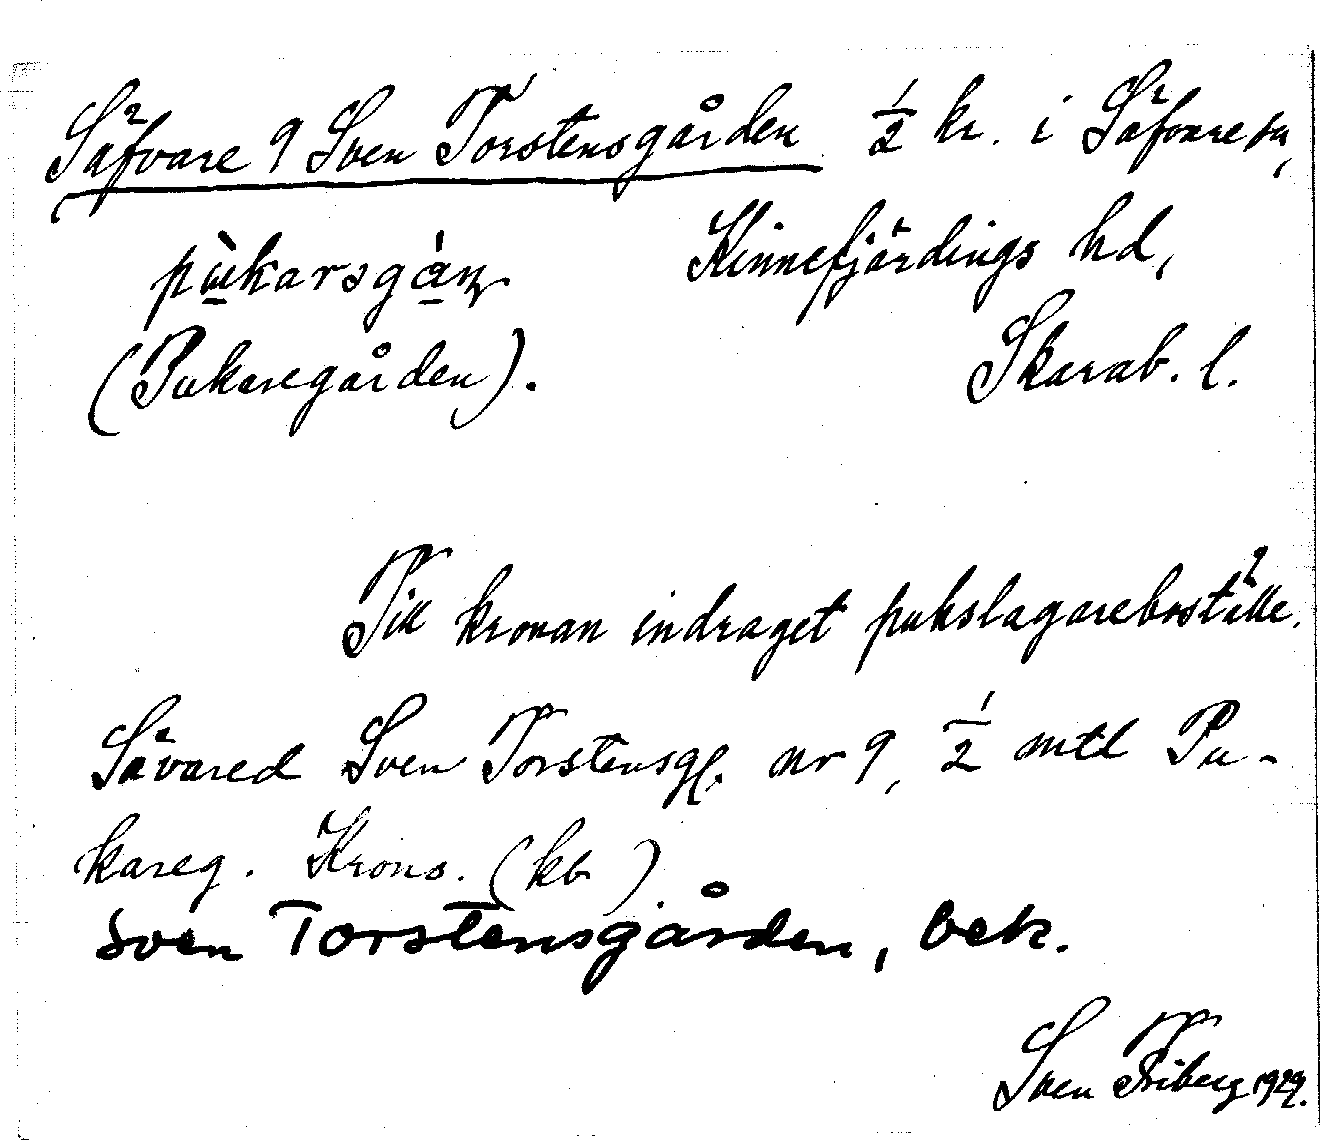 Säfvare 9 Sven Torstensgården ½ kr. i Säfvare sn,
pùkarsgán Kinnefjärdings hd,
(Pukaregården). Skarab. l.
Till kronan indraget pukslagareboställe.
Sävared Sven Torstensg. nr 9, ½ mtl Pu-
kareg. Krono. (kb)
Sven Torstensgården, bek.
Sven Friberg 1929.